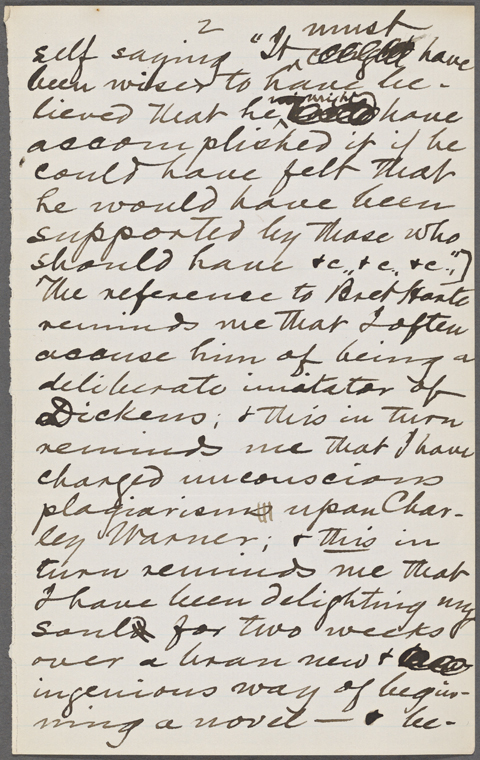 2
must
self saying "It have
been wiser to have be-
lieved that he might have
accomplished it if he
could have felt that
he would have been
supported by those who
should have &c., &c., &c.,")
The reference to Bret Harte
reminds me that I often
accuse him of being a
deliberate imitator of
Dickens; & this in turn
reminds me that I have
charged unconscious
plagiarism upon Char-
ley Warner; & this in
turn reminds me that
I have been delighting my
soul for two weeks
over a bran new &
ingenious way of begin-
ning a novel — & be-